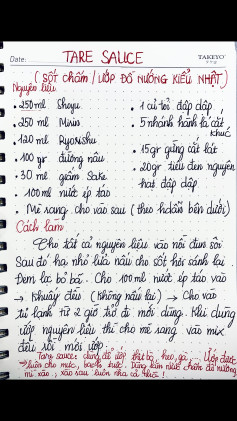 Date:
TAKEYO
TARE SAUCE
(SỐT CHẤM / ƯỚP ĐỒ NƯỚNG KIỂU NHẬT)
Nguyên liệu
• 250 ml Shoyu
• 250 ml Mirin
• 120 ml Ryorishu
• 100 gr đường nâu
• 30 ml giấm Sake
• 100 ml nước ép táo
• 1 củ tỏi đập dập
• 5 nhánh hành lá cắt khúc
• 15gr gừng cắt lát
• 20gr tiêu đen nguyên hạt đập dập
• Mè rang cho vào sau (theo hdẫn bên dưới)
Cách làm
Cho tất cả nguyên liệu vào nồi đun sôi
Sau đó hạ nhỏ lửa nấu cho sốt hơi sánh lại.
Đem lọc bỏ bã. Cho 100ml nước ép táo vào
→ Khuấy đều (không nấu lại) → Cho vào
tủ lạnh từ 2 giờ trở đi mới dùng. Khi dùng
ướp nguyên liệu thì cho mè rang vào mix
đều rồi mới ướp.
Tare sauce: dùng để ướp thịt bò, heo, gà... Ướp được
luôn cho mực, bạch tuộc. Dùng làm nước chấm đồ nướng
mì xào, xào rau luôn nha cả nhà!